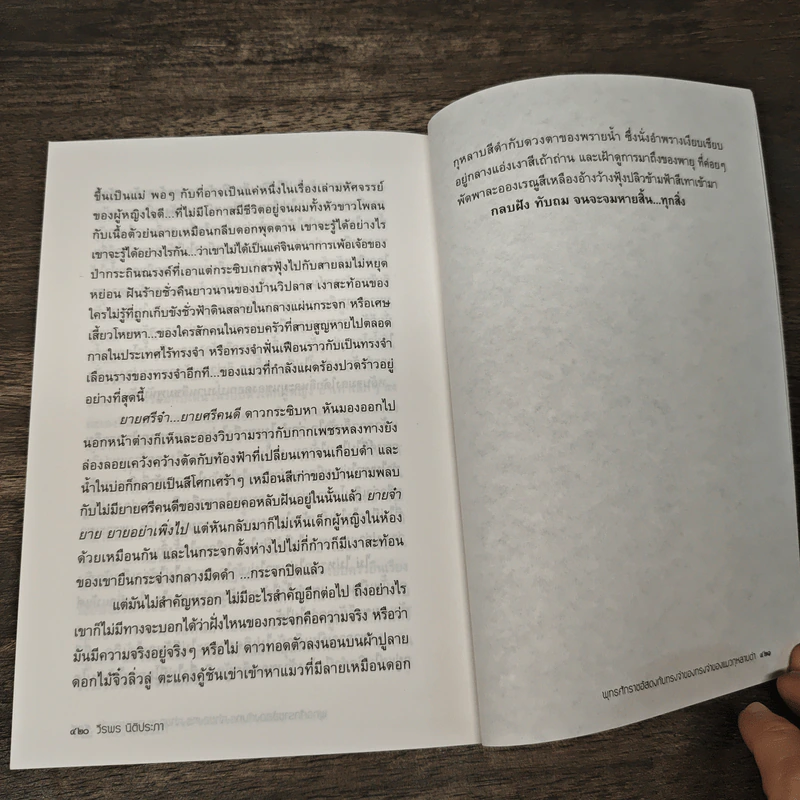 ขึ้นเป็นแม่ พอๆ กับที่อาจเป็นแค่หนึ่งในเรื่องเล่ามหัศจรรย์
ของผู้หญิงใจดี...ที่ไม่มีโอกาสมีชีวิตอยู่จนผมทั้งหัวขาวโพลน
กับเนื้อตัวย่นลายเหมือนกลีบดอกพุดตาน เขาจะรู้ได้อย่างไร
เขาจะรู้ได้อย่างไรกัน...ว่าเขาไม่ได้เป็นแค่จินตนาการเพ้อเจ้อของ
ป่ากระถินณรงค์ที่เอาแต่กระซิบเกสรฟุ้งไปกับสายลมไม่หยุด
หย่อน ฝันร้ายชั่วคืนยาวนานของบ้านวิปลาส เงาสะท้อนของ
ใครไม่รู้ที่ถูกเก็บขังชั่วฟ้าดินสลายในกลางแผ่นกระจก หรือเศษ
เสี้ยวโหยหา...ของใครสักคนในครอบครัวที่สาบสูญหายไปตลอด
กาลในประเทศไร้ทรงจำ หรือทรงจำฟั่นเฟือนราวกับเป็นทรงจำ
เลือนรางของทรงจำอีกที...ของแมวที่กำลังแผดร้องปวดร้าวอยู่
อย่างที่สุดนี้
ยายศรีจ๋า...ยายศรีคนดี ดาวกระซิบหา หันมองออกไป
นอกหน้าต่างก็เห็นละอองวิบวามราวกับกากเพชรหลงทางยัง
ล่องลอยเคว้งคว้างตัดกับท้องฟ้าที่เปลี่ยนเทาจนเกือบดำ และ
น้ำในบ่อก็กลายเป็นสีโศกเศร้าๆ เหมือนสีเก่าของบ้านยามพลบ
กับไม่มียายศรีคนดีของเขาลอยคอหลับฝันอยู่ในนั้นแล้ว ยายจ๋า
ยาย ยายอย่าเพิ่งไป แต่หันกลับมาก็ไม่เห็นเด็กผู้หญิงในห้อง
ด้วยเหมือนกัน และในกระจกตั้งห่างไปไม่กี่ก้าวก็มีเงาสะท้อน
ของเขายืนกระจ่างกลางมืดดำ ...กระจกปิดแล้ว
แต่มันไม่สำคัญหรอก ไม่มีอะไรสำคัญอีกต่อไป ถึงอย่างไร
เขาก็ไม่มีทางจะบอกได้ว่าฝั่งไหนของกระจกคือความจริง หรือว่า
มันมีความจริงอยู่จริงๆ หรือไม่ ดาวทอดตัวลงนอนบนผ้าปูลาย
ดอกไม้จิ๋วลิ่วลู่ ตะแคงคู้ชันเข่าเข้าหาแมวที่มีลายเหมือนดอก
๔๒๐ วีรพร นิติประภา
กุหลาบสีดำกับดวงตาของพรายน้ำ ซึ่งนั่งอำพรางเงียบเชียบ
อยู่กลางแอ่งเงาสีเถ้าถ่าน และเฝ้าดูการมาถึงของพายุ ที่ค่อยๆ
พัดพาละอองเรณูสีเหลืองอ้างว้างฟุ้งปลิวข้ามฟ้าสีเทาเข้ามา
กลบฝัง ทับถม จนจะจมหายสิ้น...ทุกสิ่ง
พุทธศักราชอัสดงกับทรงจำของทรงจำของแมวกุหลาบดำ ๔๒๑